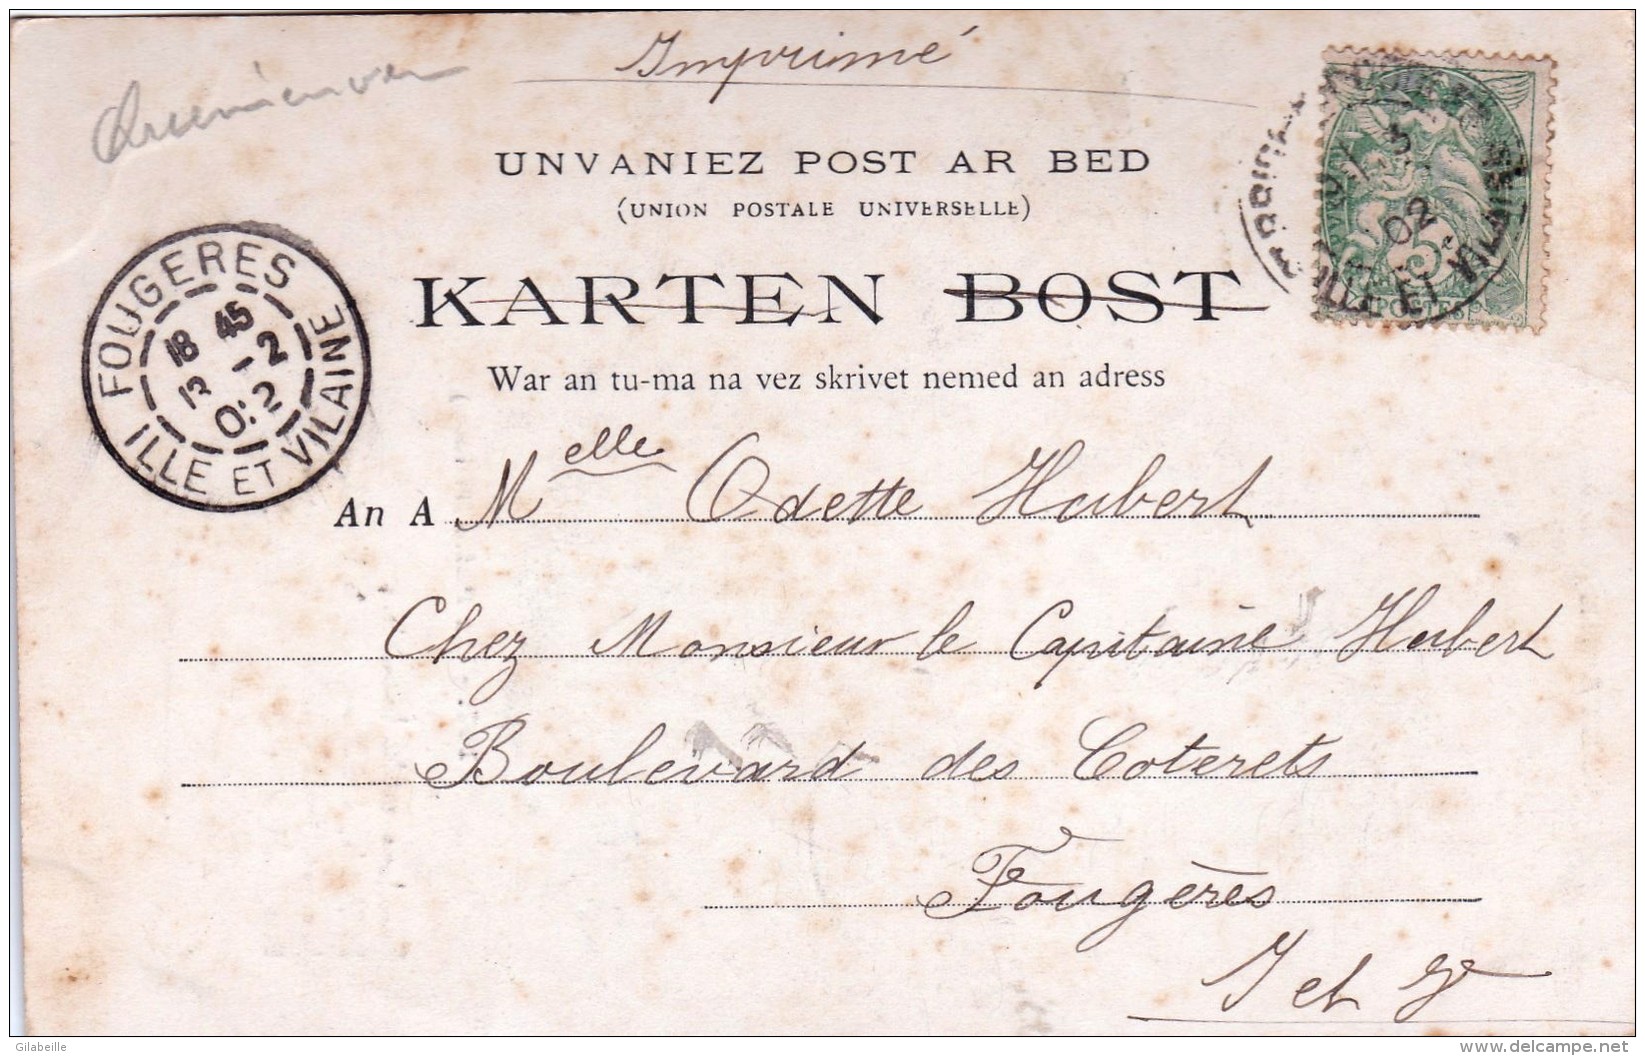 Imprimé
UNVANIEZ POST AR BED
(UNION POSTALE UNIVERSELLE)
KARTEN BOST
War an tu-ma na vez skrivet nemed an adress
FOUGERES
18 45
13 -2
02
ILLE ET VILAINE
02
ILLE ET VILAINE
5
POSTES
An A Melle Odette Hubert
Chez Monsieur le Capitaine Hubert
Boulevard des Coterets
Fougères
I et V
Gilabeille
delcampe.net